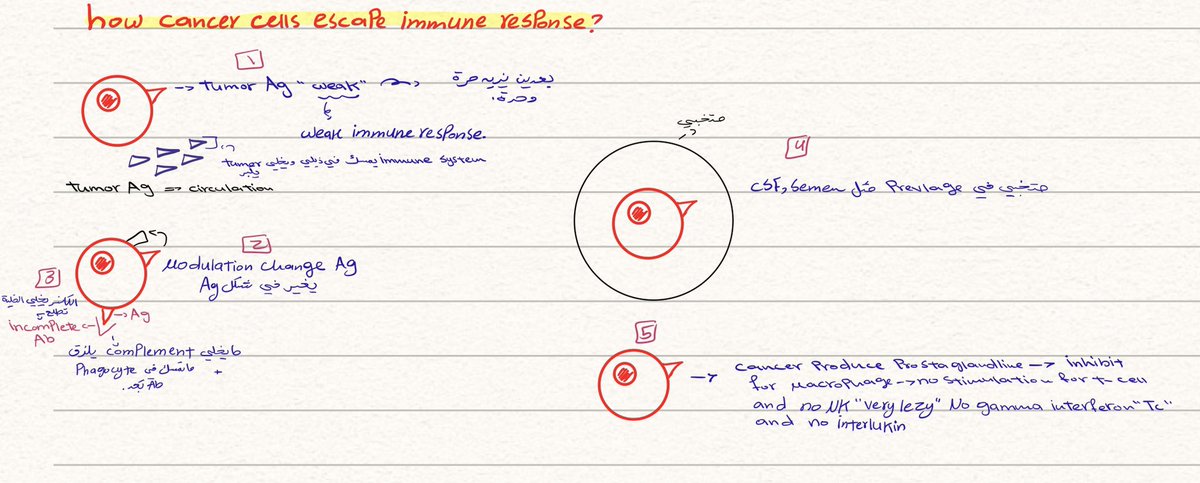 how cancer cells escape immune response?
1
→ tumor Ag "weak" → بعدين نزيه مرة
وحرة.
weak immune response.
tumor يمسك في ذيلي ويخلي immune system
tumor Ag ⇒ circulation
2
Modulation change Ag
يغير في شكل Ag
3
الكانسر يخلي الخلية
تطلع
incomplete
Ab
→ Ag
ما يخلي complement يلزق
+ ماتمسك في Phagocyte
Ab
متخبي
4
متخبي في Prevlage مثل CSF, Semen
5
→ cancer Produce Prostaglandline → inhibit
for Macrophage → no stimulation for t-cell
and no NK "very lezy" No gamma interferon "Tc"
and no interlukin